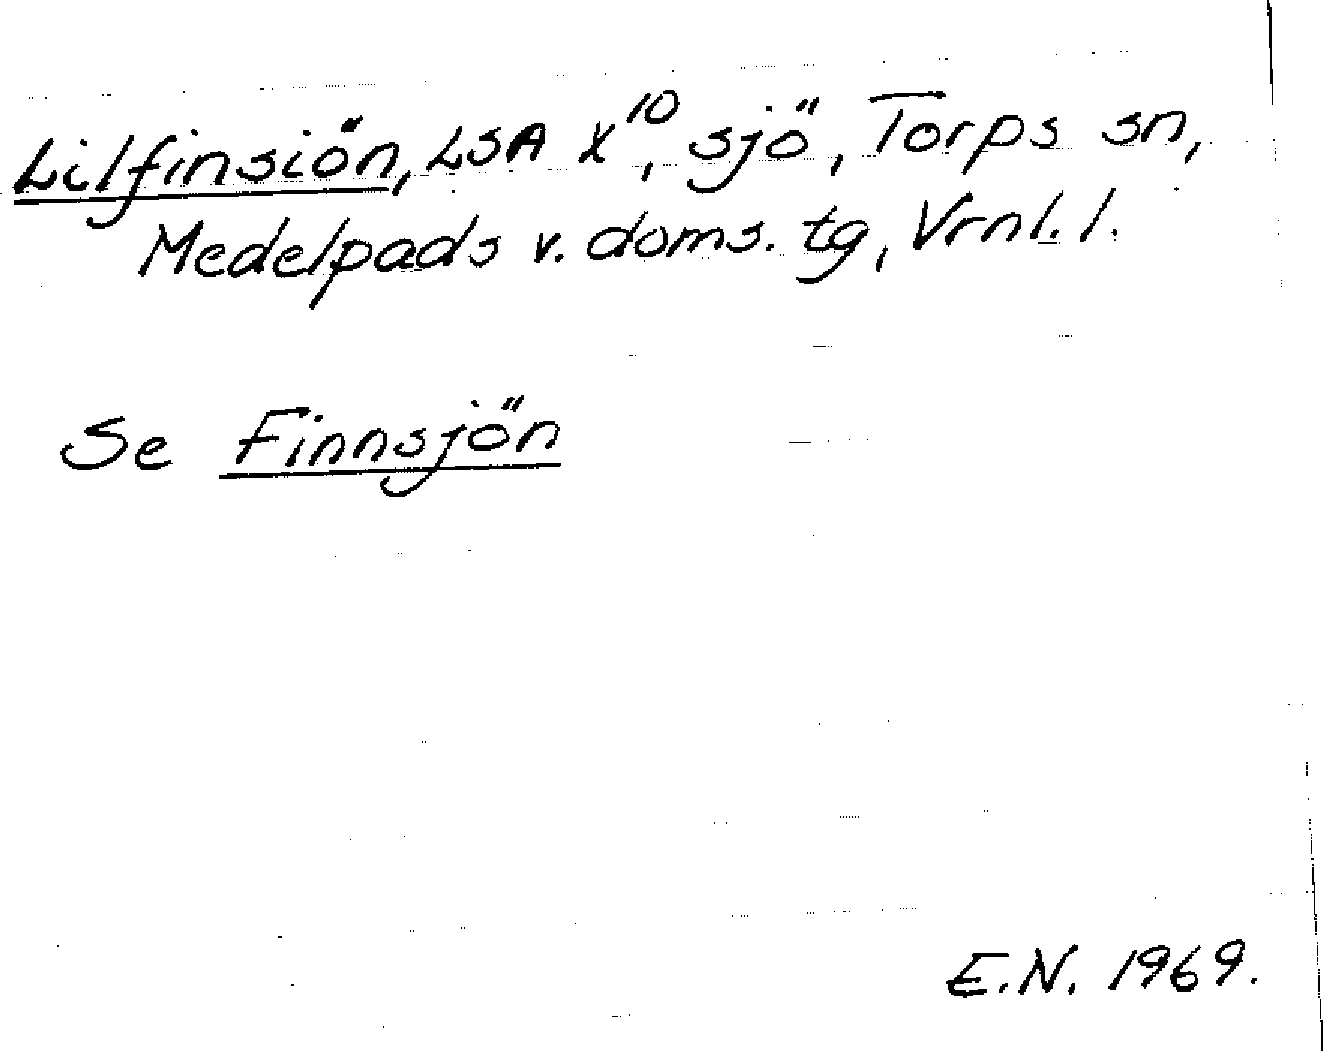 Lilfinsiön, LSA X¹⁰, sjö, Torps sn,
Medelpads v. doms. tg, Vrnl. l.
Se Finnsjön
E.N. 1969.